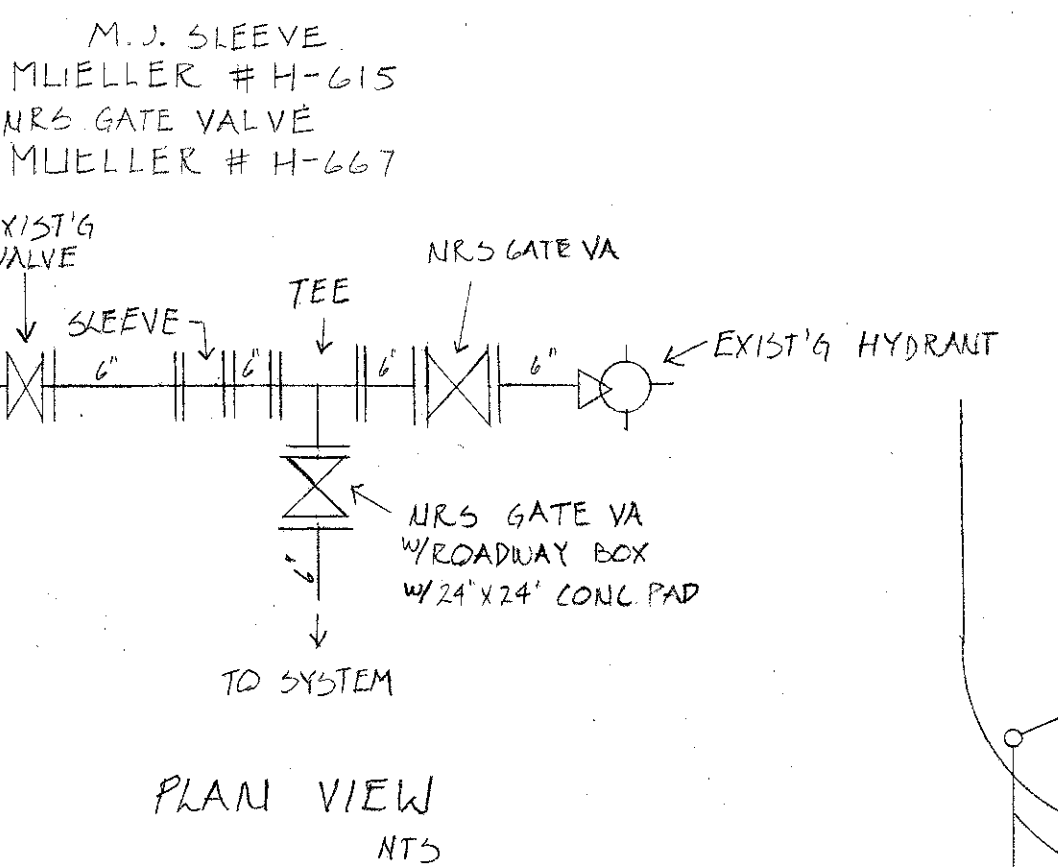 M.J. SLEEVE
MUELLER # H-615
NRS GATE VALVE
MUELLER # H-667
XIST'G
VALVE
NRS GATE VA
TEE
SLEEVE
EXIST'G HYDRANT
6" 6" 6" 6"
NRS GATE VA
W/ROADWAY BOX
W/24"X24" CONC. PAD
6"
TO SYSTEM
PLAN VIEW
NTS